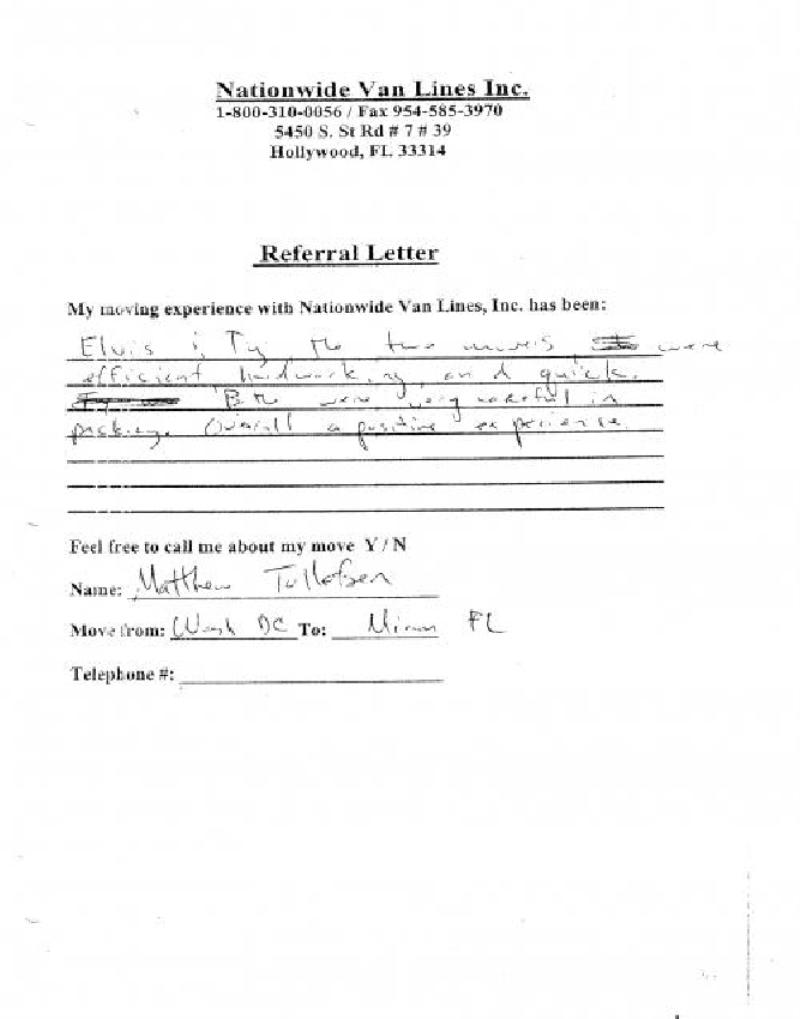 Nationwide Van Lines Inc.
1-800-310-0056 / Fax 954-585-3970
5450 S. St Rd # 7 # 39
Hollywood, FL 33314
Referral Letter
My moving experience with Nationwide Van Lines, Inc. has been:
Elvis & Ty the two movers were
efficient hardworking, and quick.
Both were very careful in
packing. Overall a positive experience.
Feel free to call me about my move Y / N
Name: Matthew Tollefsen
Move from: Wash DC To: Miami FL
Telephone #: